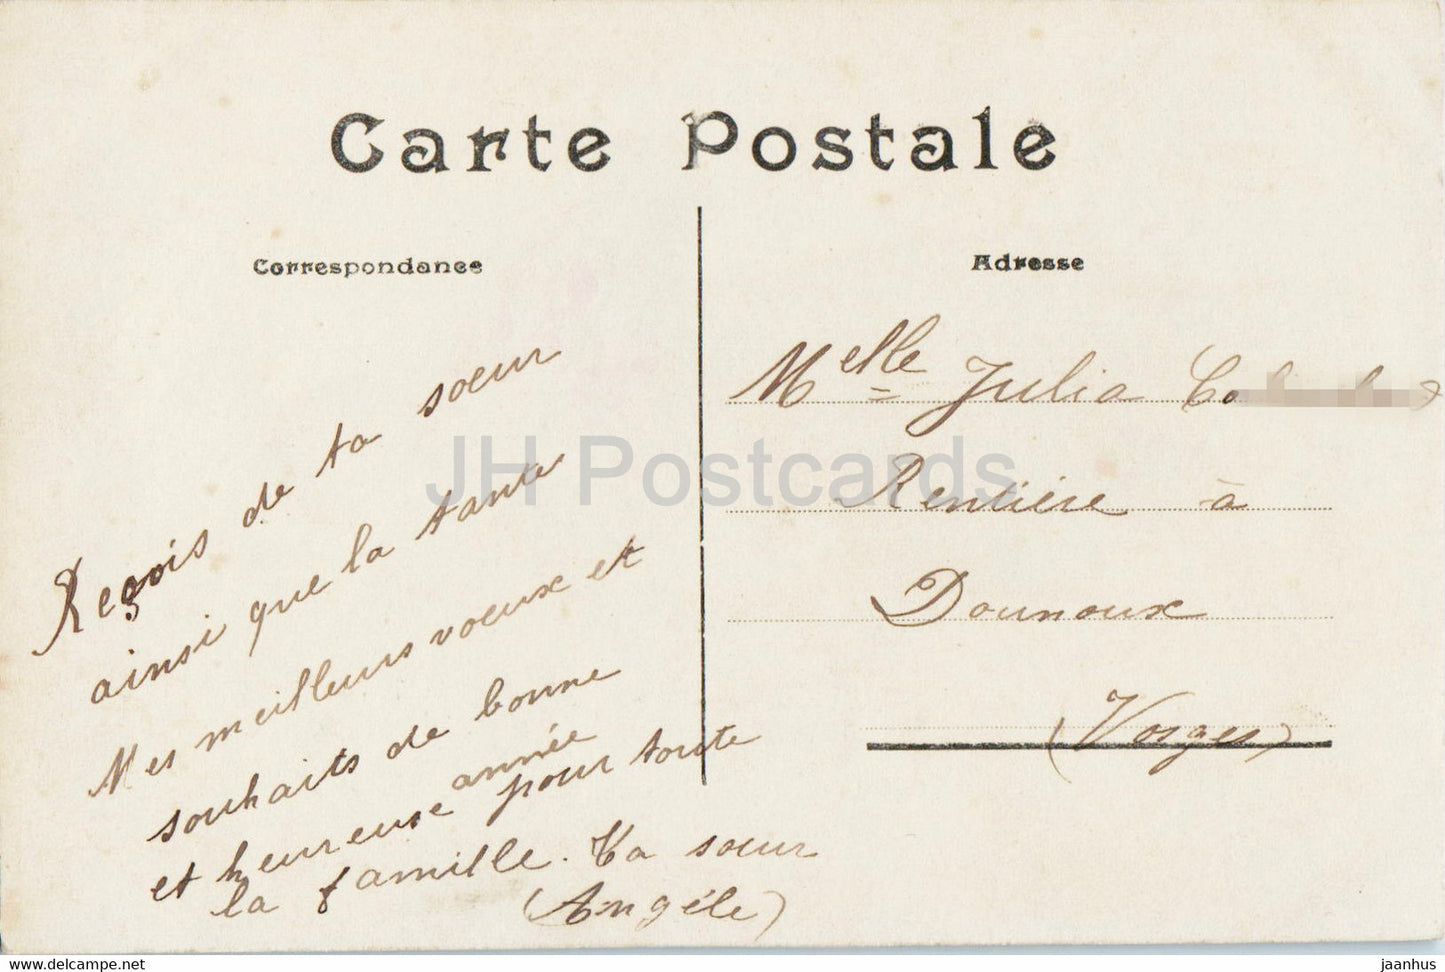 Carte Postale
Correspondance
Reçois de ta sœur
ainsi que la tante
Mes meilleurs voeux et
souhaits de bonne
année
et heureuse pour toute
la famille. Ta sœur
(Angéle)
Adresse
Melle Julia
Rentière à
Dounoux
(Vosges)
JH Postcards
https://delcampe.net
jaanhus